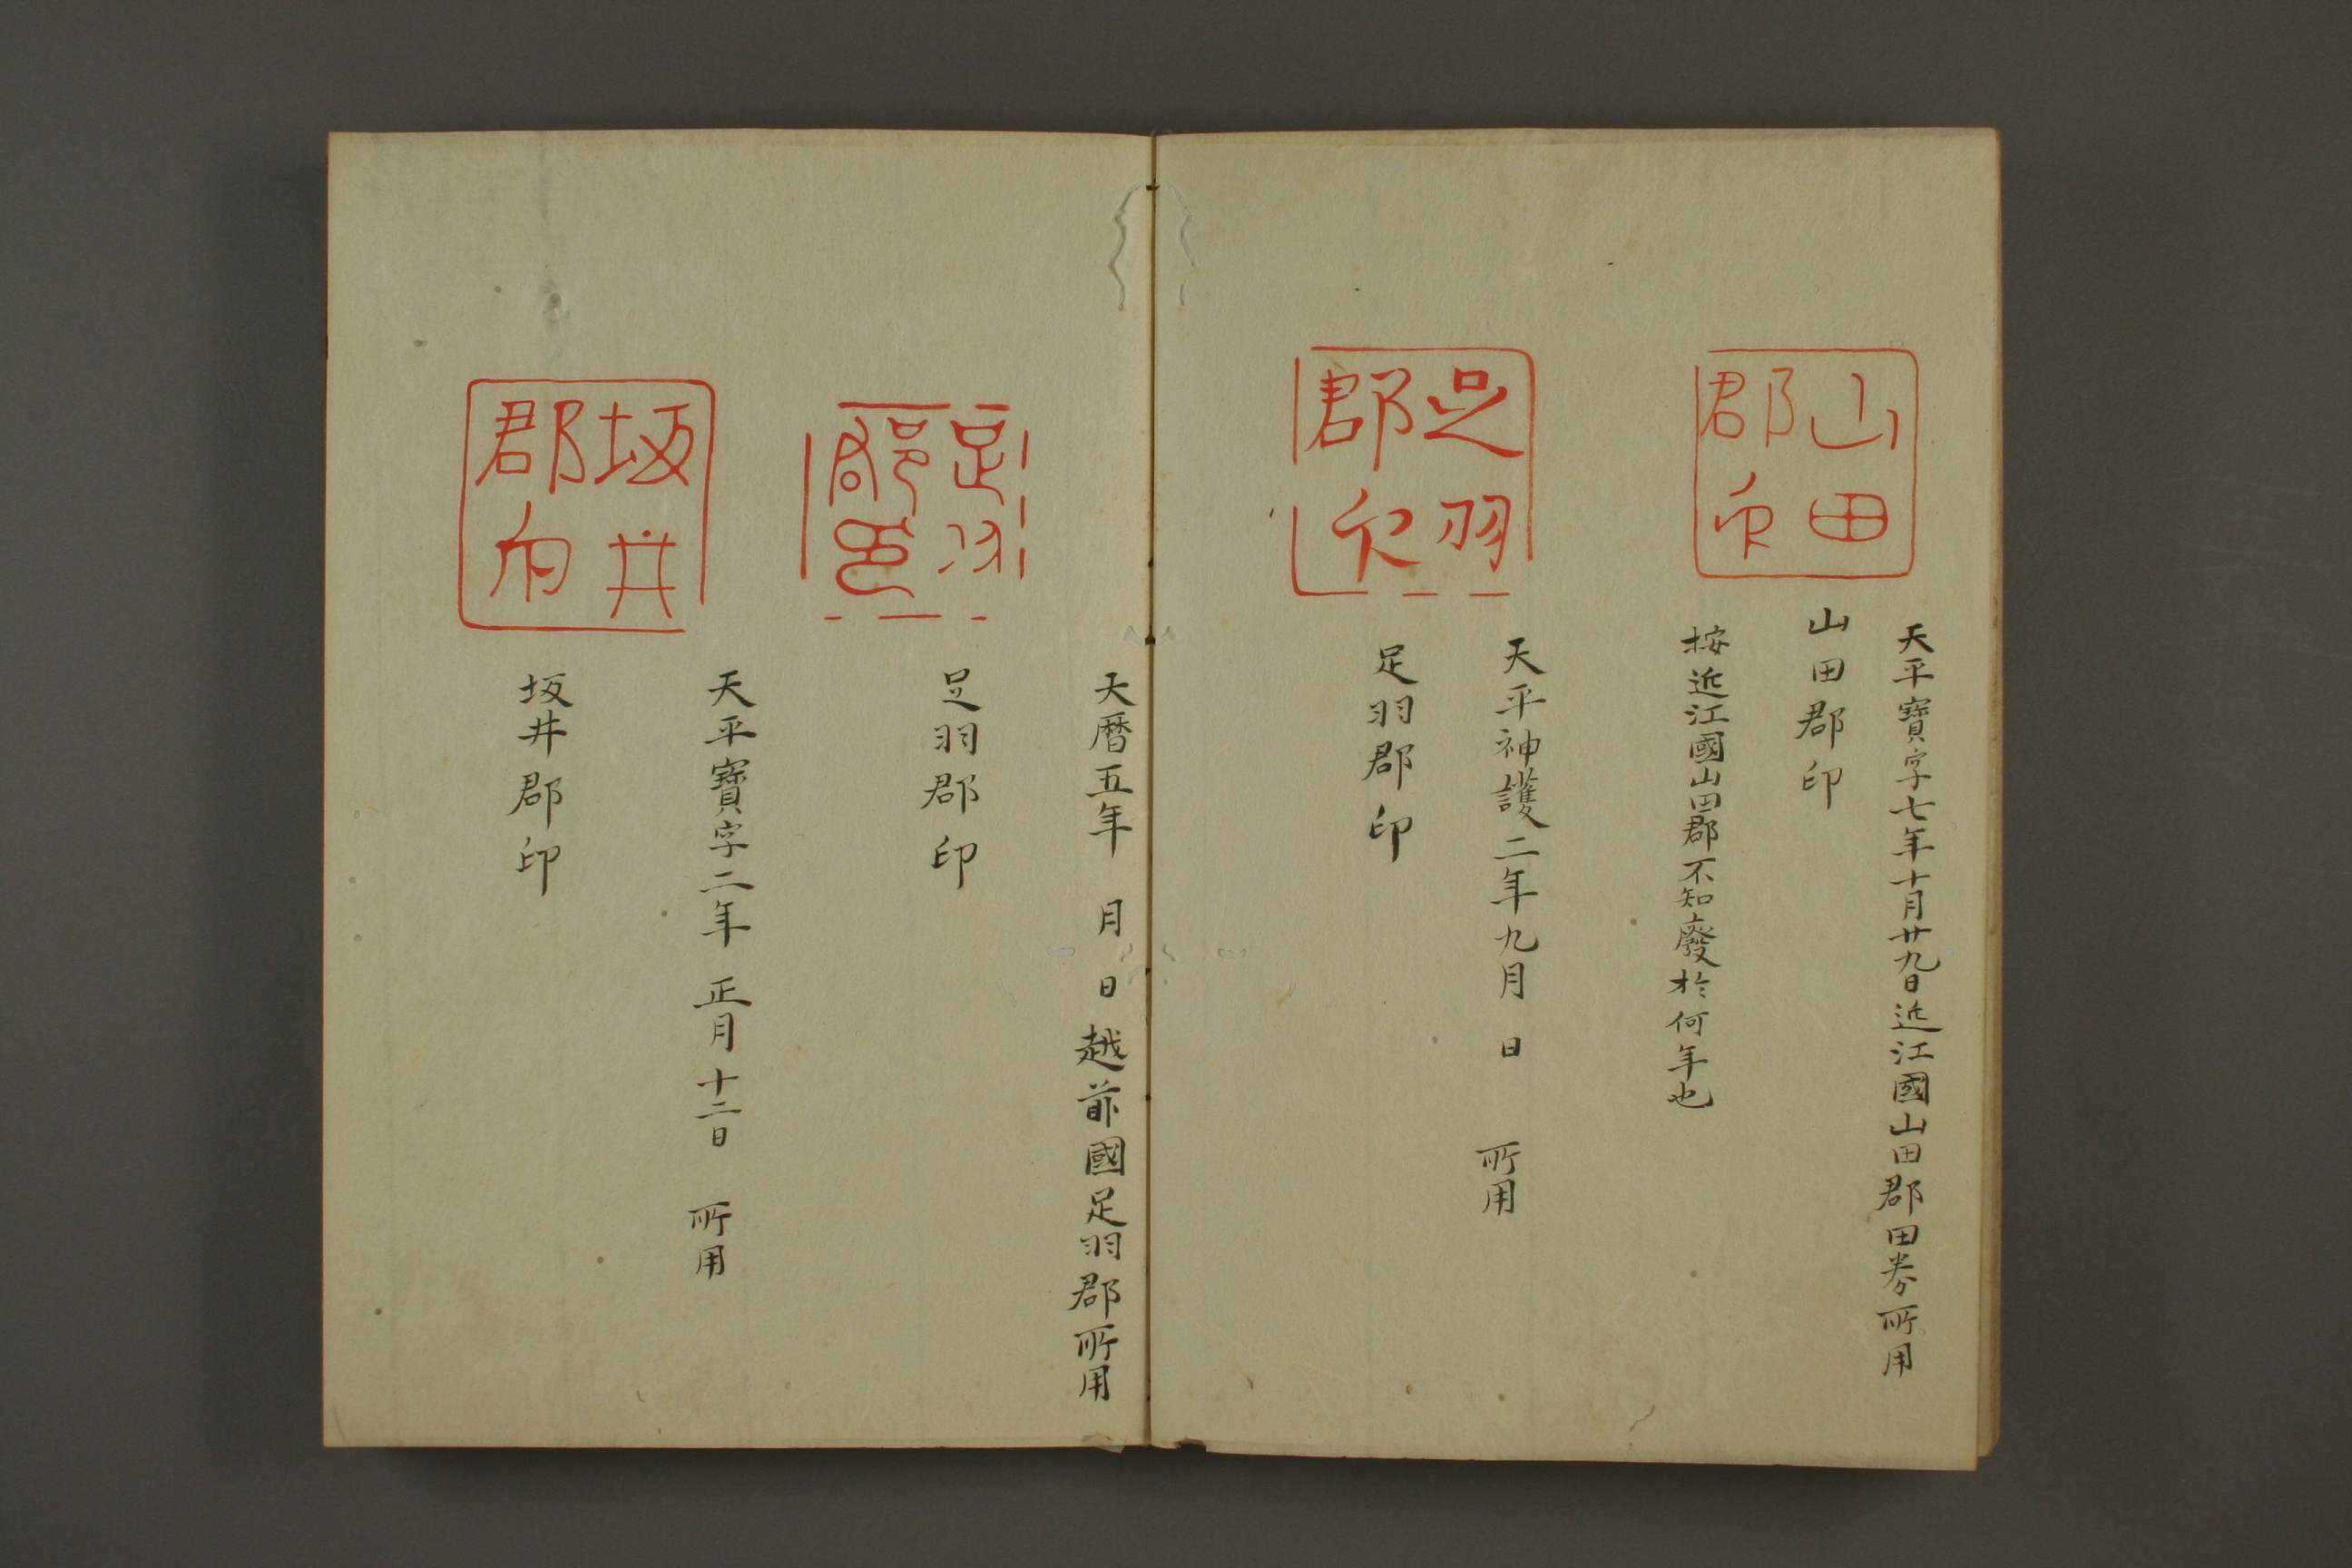 山田
郡印
天平寳字七年十月廿九日近江國山田郡田券所用
山田郡印
按近江國山田郡不知廢於何年也
足羽
郡印
天平神護二年九月　日　所用
足羽郡印
天暦五年　月　日越前國足羽郡所用
足羽
郡印
足羽郡印
天平寳字二年　正月十二日　所用
坂井
郡印
坂井郡印